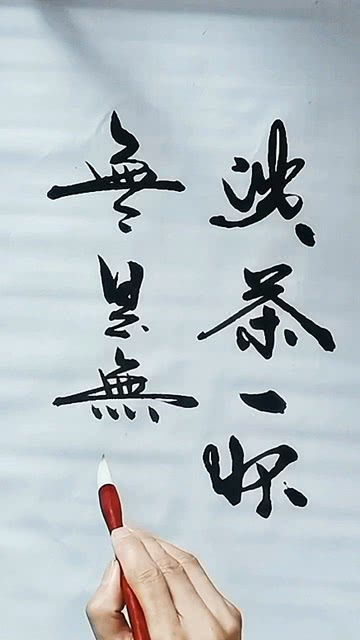 淡茶一杯
無是無